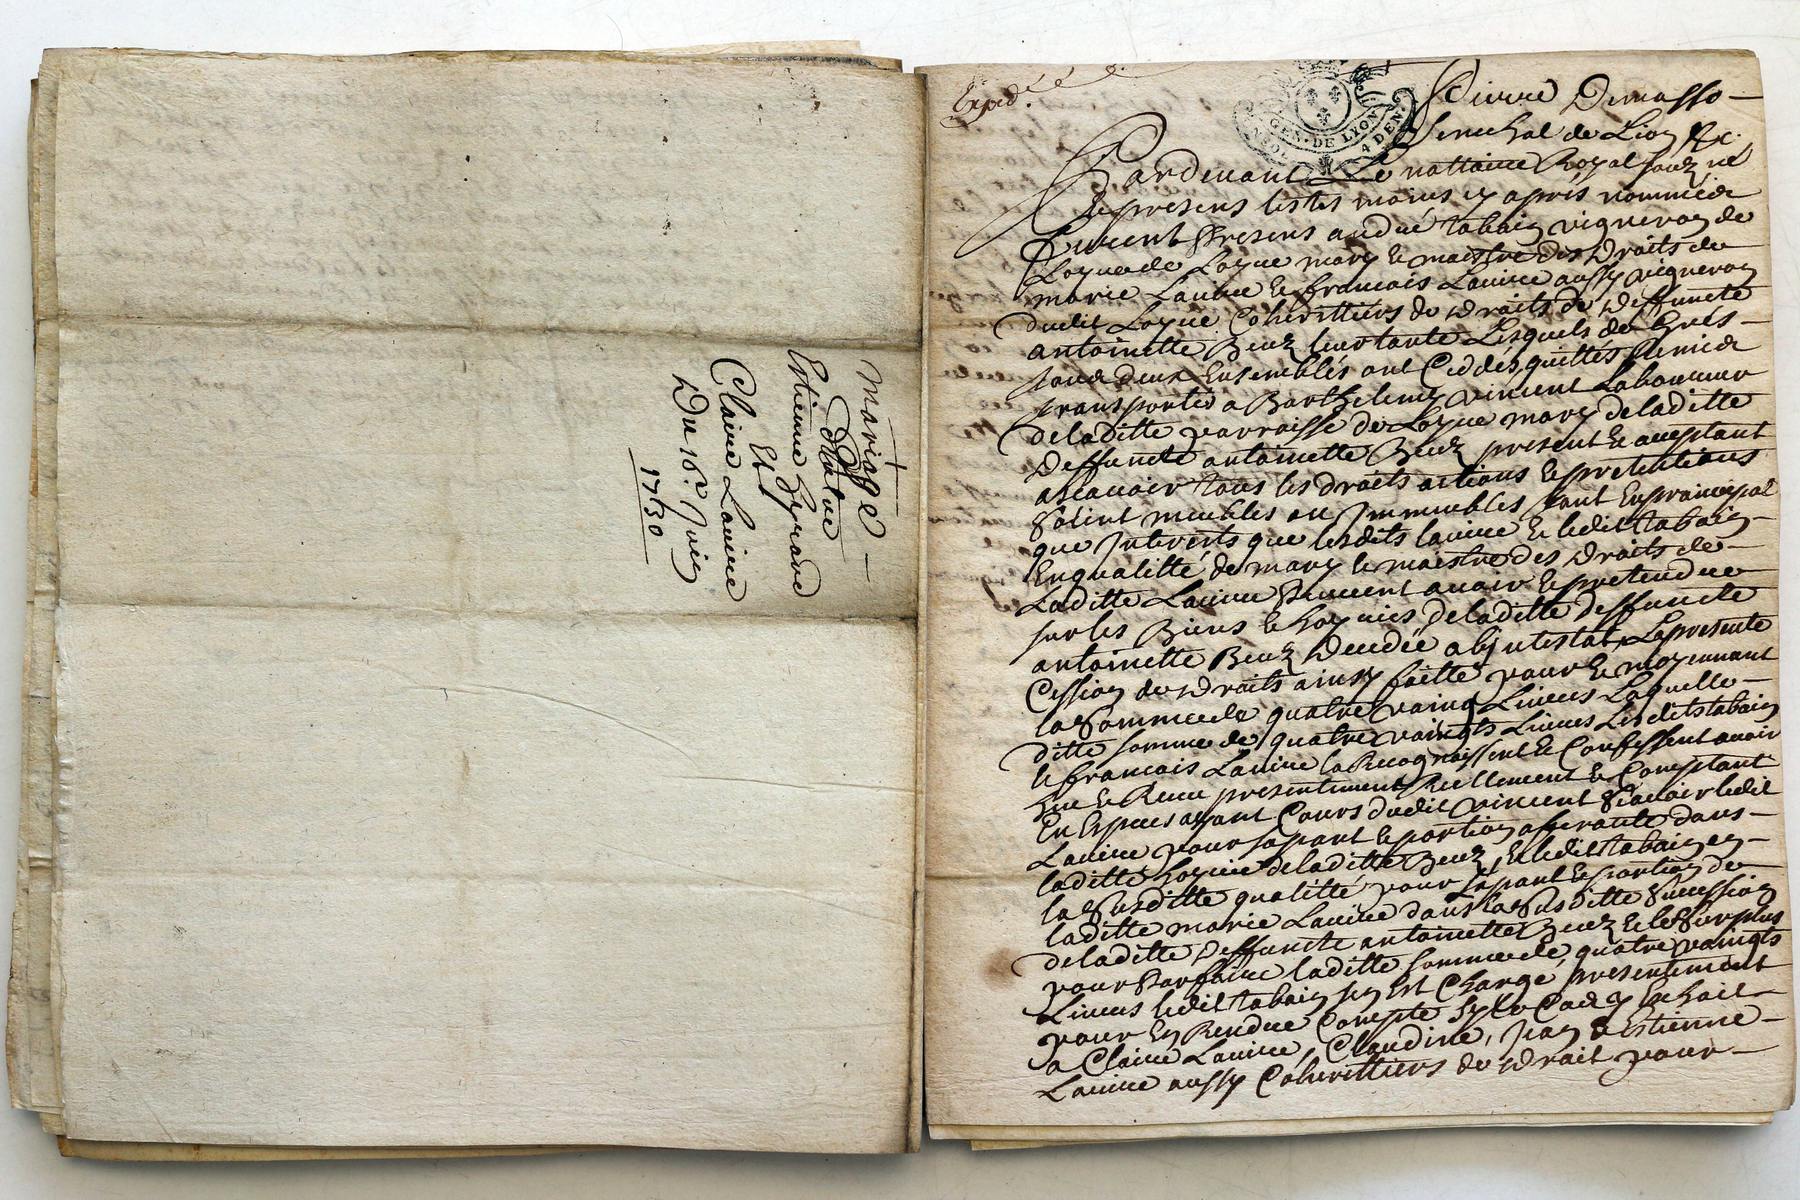 Mariage
Entre
Estienne Gyraud
Et
Claire Lavive
Du 18e Juin
1730
Expéd.
GEN. DE LYON
4 DEN.
Pierre Demasso
Senechal de Lion &c.
Pardevant Le nottaire Royal souz né
Et presens les tesmoins cy après nommés
furent Presens andré tabaiz vigneron de
Loyne mary & maistre des Droits de
marie Lavive & francois Lavive aussy vigneron
dudit Loyne Cohérittiers de Droits de Deffuncte
antoinette Beuz leur tante Lesquels de Grés
transportés a Barthelemy vincent Laboureur
de laditte parroisse de Loyne mary de laditte
Deffuncte antoinette Beuz present & acceptant
ascavoir tous les droits actions & pretentions
Soient meubles ou Immeubles tant En principal
que Interests que lesdits lavive & ledit tabaiz
En qualitté de mary & maistre des Droits de
Laditte Lavive Peuvent avoir & pretendre
sur les Biens & hoyries de laditte deffuncte
antoinette Beuz Decedée ab jntestat, La presente
Cession de Droits ainsy faitte pour & moyennant
la Somme de quatre vaingt Livres Laquelle
ditte somme de quatre vaingts Livres Lesdits tabaiz
& francois Lavive la Recognoissent & Confessent avoir
Eue & Receu presentement Reellement & Comptant
En Especes ayant Cours dudit vincent Scavoir ledit
Lavive pour sa part & portion afferante dans
laditte hoyrie de laditte Beuz, & ledit tabaiz en
la Susditte qualitté pour la part & portion de
laditte marie Lavive dans la Susditte Succession
de laditte Deffuncte antoinette Beuz & le Surplus
pour Parfaire laditte somme de quatre vaingts
Livres ledit tabaiz sen Est Chargé presentement
pour En Rendre Compte
a Claire Lavive, Claudine, Jean & Estienne
Lavive aussy Cohérittiers de Droit pour